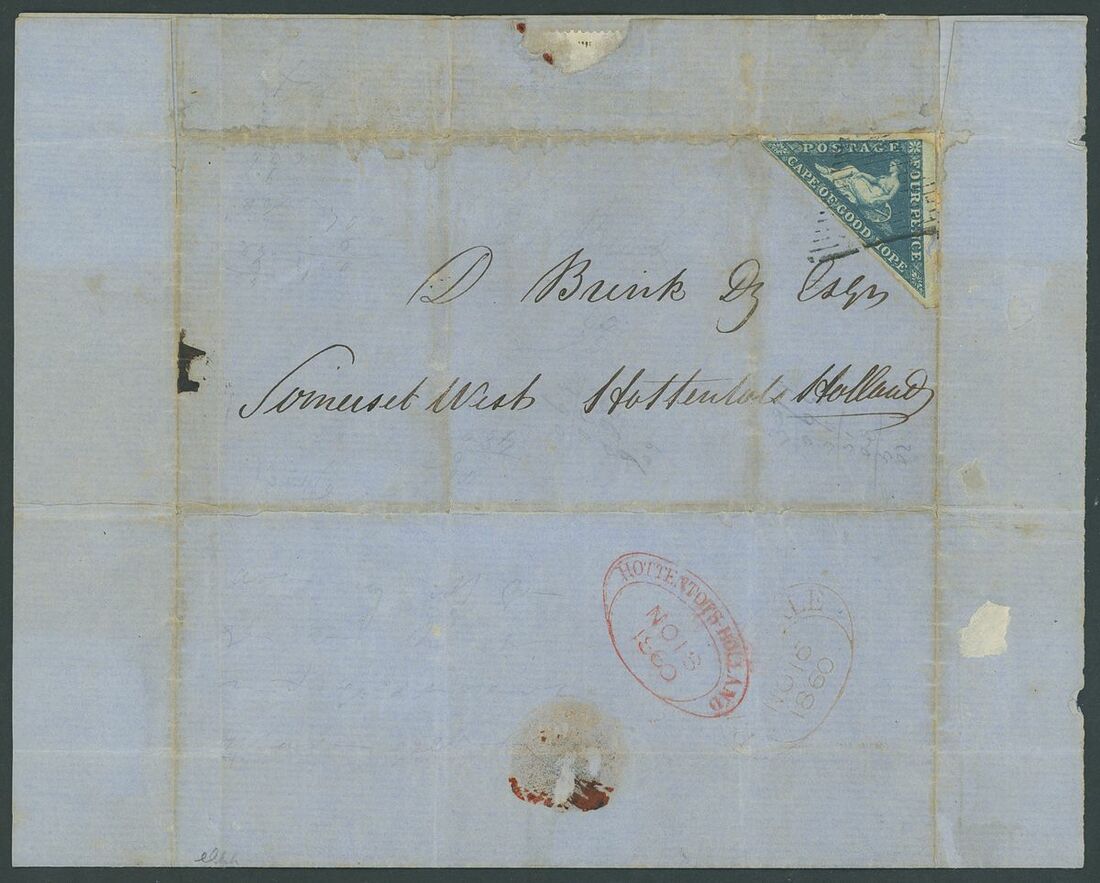 POSTAGE
FOUR PENCE
CAPE OF GOOD HOPE
D Brink Dz Esqr
Somerset West Hottentots Holland
HOTTENTOTS-HOLLAND
NO 18
1860
NO 16
1860